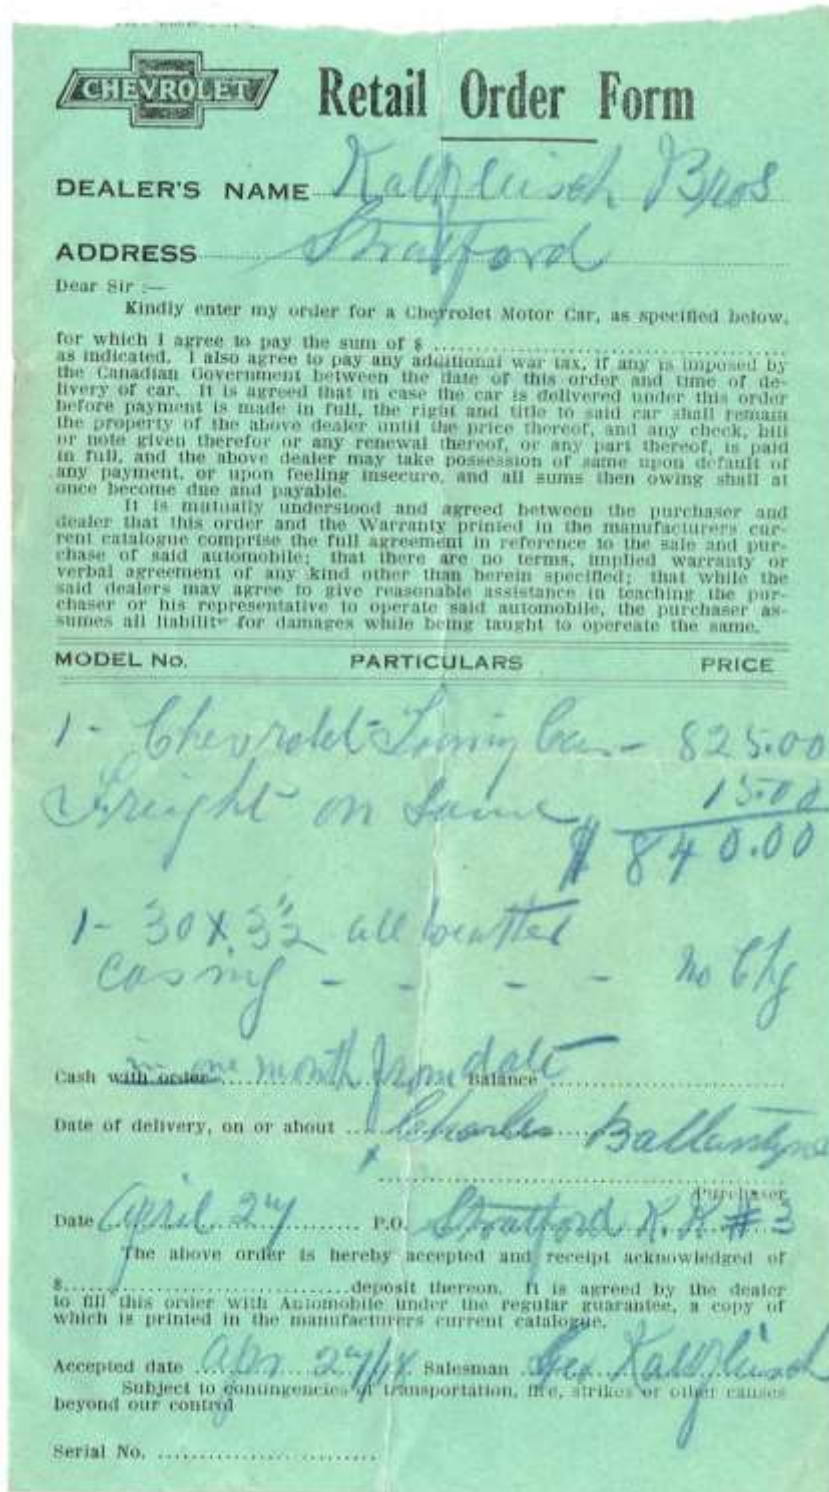 CHEVROLET Retail Order Form
DEALER'S NAME Kalbfleisch Bros
ADDRESS Stratford
Dear Sir :—
Kindly enter my order for a Chevrolet Motor Car, as specified below,
for which I agree to pay the sum of $
as indicated. I also agree to pay any additional war tax, if any is imposed by
the Canadian Government between the date of this order and time of de-
livery of car. It is agreed that in case the car is delivered under this order
before payment is made in full, the right and title to said car shall remain
the property of the above dealer until the price thereof, and any check, bill
or note given therefor or any renewal thereof, or any part thereof, is paid
in full, and the above dealer may take possession of same upon default of
any payment, or upon feeling insecure, and all sums then owing shall at
once become due and payable.
It is mutually understood and agreed between the purchaser and
dealer that this order and the Warranty printed in the manufacturers cur-
rent catalogue comprise the full agreement in reference to the sale and pur-
chase of said automobile; that there are no terms, implied warranty or
verbal agreement of any kind other than herein specified; that while the
said dealers may agree to give reasonable assistance in teaching the pur-
chaser or his representative to operate said automobile, the purchaser as-
sumes all liability for damages while being taught to opereate the same.
MODEL No. PARTICULARS PRICE
1 - Chevrolet Touring Car - 825.00
Freight on Same 15.00
$ 840.00
1 - 30 X 3½
casing - - - - no Chg
Cash with order in one month from date Balance
Date of delivery, on or about Charles Ballantyne
x
Purchaser
Date April 24 P.O. Stratford R.R # 3
The above order is hereby accepted and receipt acknowledged of
$ deposit thereon. It is agreed by the dealer
to fill this order with Automobile under the regular guarantee, a copy of
which is printed in the manufacturers current catalogue.
Accepted date Apr 24/18 Salesman Geo Kalbfleisch
Subject to contingencies of transportation, fire, strikes or other causes
beyond our control
Serial No.